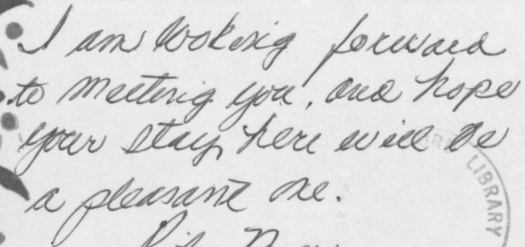 I am looking forward
to meeting you, and hope
your stay here will be
a pleasant one.
LIBRARY